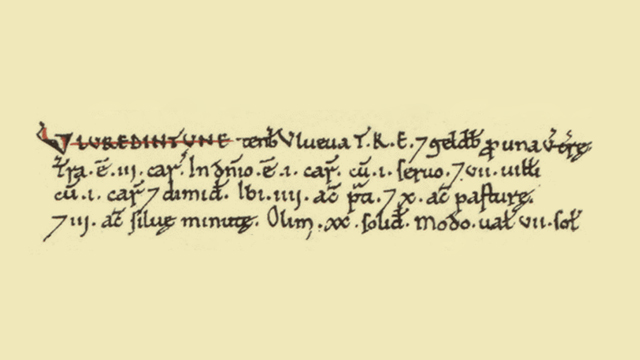 VLVREDINTVNE tenb̄ Vlueua T.R.E. 7 geldb̄ ꝓ una v̄ træ.
Tra.ē.iii.car̄. In dn̄io.ē.i.car̄.cū.i.seruo.7 vii.uilli
cū.i.car̄ 7 dimid̄. Ibi.iiii.ac̄ p̄ti.7 x.ac̄ pasturę.
7 iii.ac̄ siluę minutę. Olim.xx.solid̄. Modo.ual̄ vii.sol̄